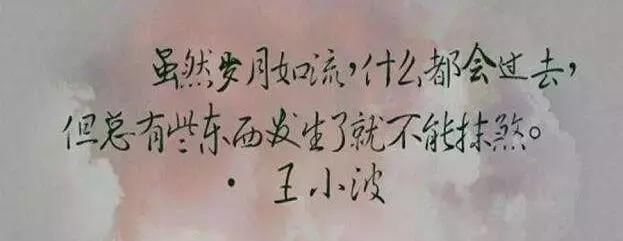 虽然岁月如流，什么都会过去，
但总有些东西发生了就不能抹煞。
·王小波